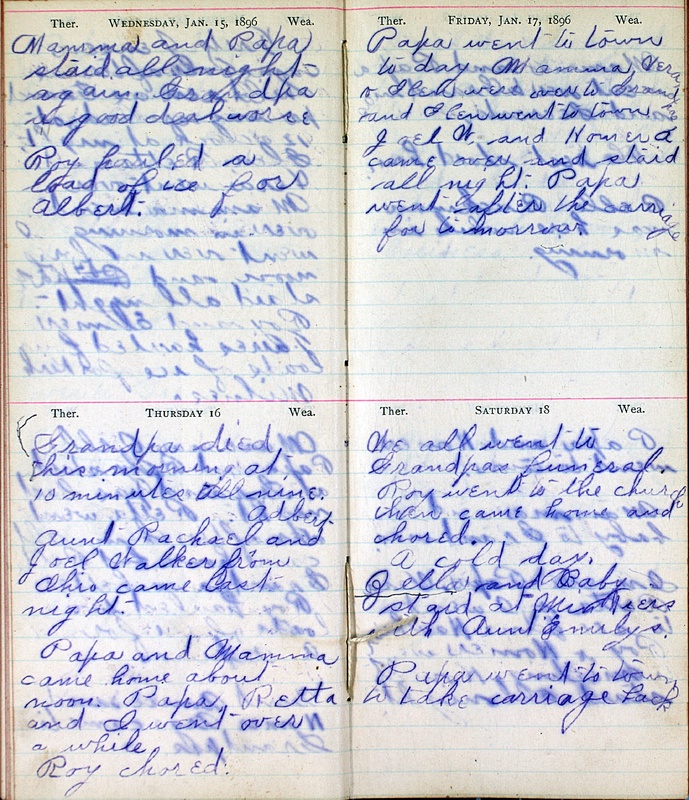 Ther. WEDNESDAY, JAN. 15, 1896 Wea.
Mamma and Papa
staid all night
again. Grandpa
a good deal worse
Roy hauled a
load of ice for
Albert.
Ther. THURSDAY 16 Wea.
Grandpa died
this morning at
10 minutes till nine.
Aunt Rachael and
Joel Walker from
Ohio came last
night.
Papa and Mamma
came home about
noon. Papa, Retta
and I went over
a while
Roy chored.
Ther. FRIDAY, JAN. 17, 1896 Wea.
Papa went to town
to day Mamma, Vera
were over to Grand
and Glen went to town
Joel W. and Homer A
came over and staid
all night. Papa
went after the carriage
for to morrow.
Ther. SATURDAY 18 Wea.
We all went to
Grandpas funeral.
Roy went to the church
then came home and
chored.
A cold day.
and Baby
staid at
with Aunt Emily's.
Papa went to town
to take carriage back